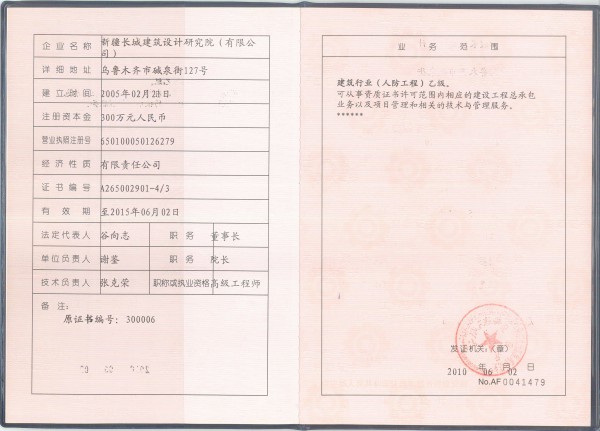 企业名称 新疆长城建筑设计研究院（有限公司）
详细地址 乌鲁木齐市碱泉街127号
建立时间 2005年02月28日
注册资本金 300万元人民币
营业执照注册号 650100050126279
经济性质 有限责任公司
证书编号 A265002901-4/3
有效期 至2015年06月02日
法定代表人 谷向志 职务 董事长
单位负责人 谢鉴 职务 院长
技术负责人 张克荣 职称或执业资格 高级工程师
备注：
原证书编号：300006
业务范围
建筑行业（人防工程）乙级。
可从事资质证书许可范围内相应的建设工程总承包
业务以及项目管理和相关的技术与管理服务。
******
发证机关：（章）
2010年06月02日
No.AF 0041479